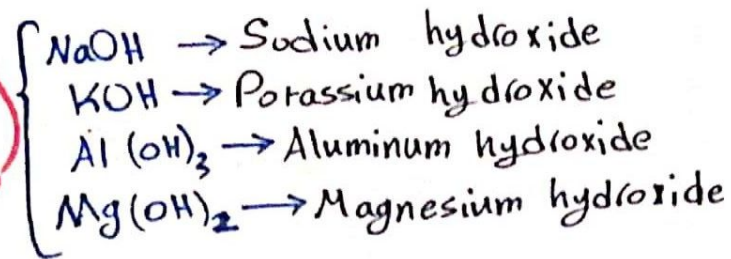 NaOH → Sodium hydroxide
KOH → Potassium hydroxide
Al (OH)₃ → Aluminum hydroxide
Mg(OH)₂ → Magnesium hydroxide